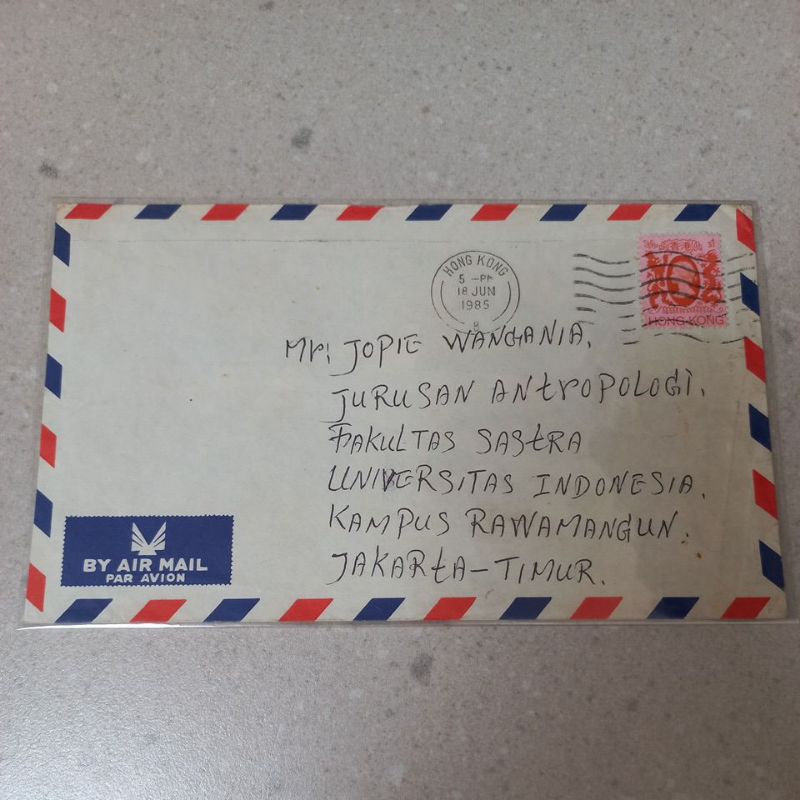 HONG KONG
5 -PM
18 JUN
1985
8
HONG KONG
Mr: JOPIE WANGANIA.
JURUSAN ANtROPOLOGI.
FAKULTAS SAStRA
UNIVERSITAS INDONESIA.
KAMPUS RAWAMANGUN.
JAKARtA-TIMUR.
BY AIR MAIL
PAR AVION